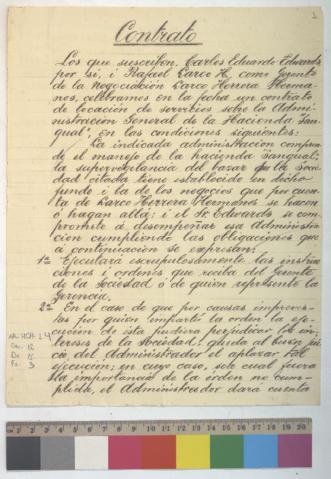 1
Contrato
Los que suscriben, Carlos Eduardo Edwards
por sí, i Rafael Larco H, como Gerente
de la Negociación Larco Herrera Herma-
nos, celebramos en la fecha un contrato
de locación de servicios sobre la Admi-
nistración General de la Hacienda "San-
qual", en las condiciones siguientes:
La indicada administración compren-
de el manejo de la hacienda Sanqual;
la supervigilancia del bazar que la Socie-
dad citada tiene establecido en dicho
fundo i la de los negocios que por cuenta
de Larco Herrera Hermanos se hacen
o hagan allá; i el Sr. Edwards se com-
promete á desempeñar esa Administra-
ción cumpliendo las obligaciones que
á continuación se expresan:
1ª Ejecutará escrupulosamente las instruc-
ciones i órdenes que reciba del Gerente
de la Sociedad ó de quien represente la
Gerencia.
2ª En el caso de que por causas imprevis-
tas por quien impartió la orden la eje-
cución de ésta pudiera perjudicar los in-
tereses de la Sociedad, queda al buen jui-
cio del Administrador el aplazar tal
ejecución; en cuyo caso, sea cual fuera
la importancia de la órden no cum-
plida, el Administrador dará cuenta